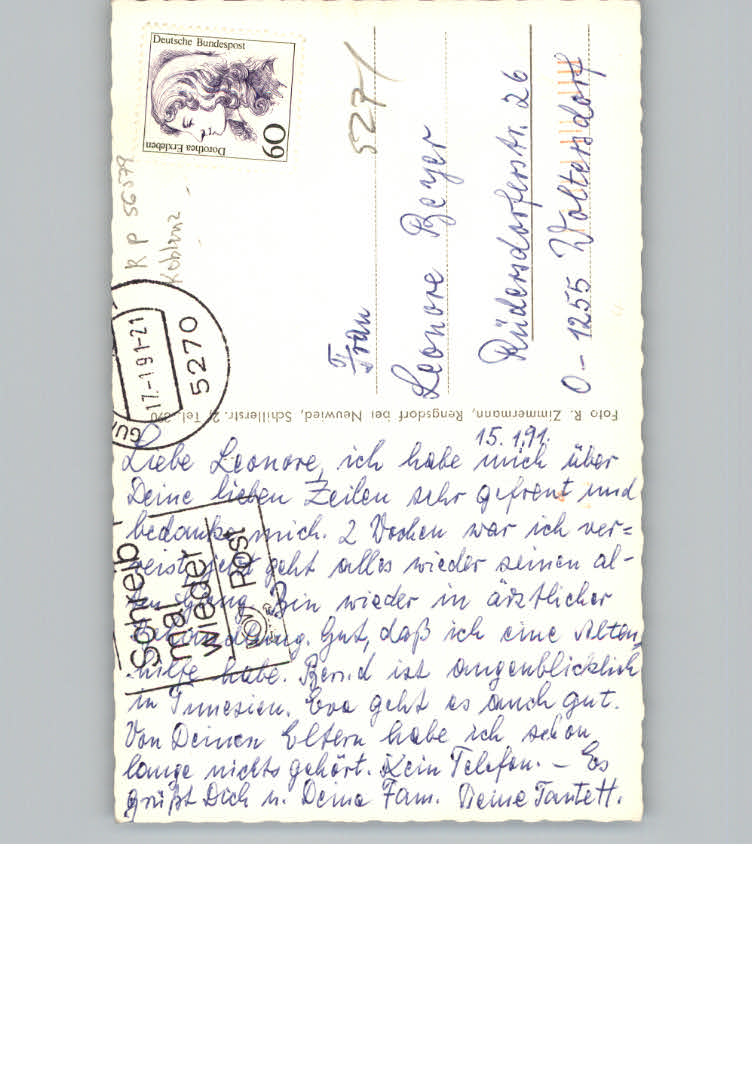 15.1.91.
Liebe Leonore, ich habe mich über
Deine lieben Zeilen sehr gefreut und
bedanke mich. 2 Wochen war ich ver=
reist, jetzt geht alles wieder seinen al-
ten Gang. Bin wieder in ärztlicher
Behandlung. Gut, daß ich eine Alten
hilfe habe. Bernd ist augenblicklich
in Tunesien. Eva geht es auch gut.
Von Deinen Eltern habe ich schon
lange nichts gehört. Kein Telefon. – Es
grüßt Dich u. Deine Fam. Deine Tante H.
Frau
Leonore Beyer
Rüdersdorferstr. 26
O-1255 Woltersdorf
5271
Deutsche Bundespost
Dorothea Erxleben
60
R P 56579
Koblenz
17.-1.91-21
5270
GU
Schreib
mal
wieder
Post
Foto R. Zimmermann, Rengsdorf bei Neuwied, Schillerstr. 2, Tel. 390